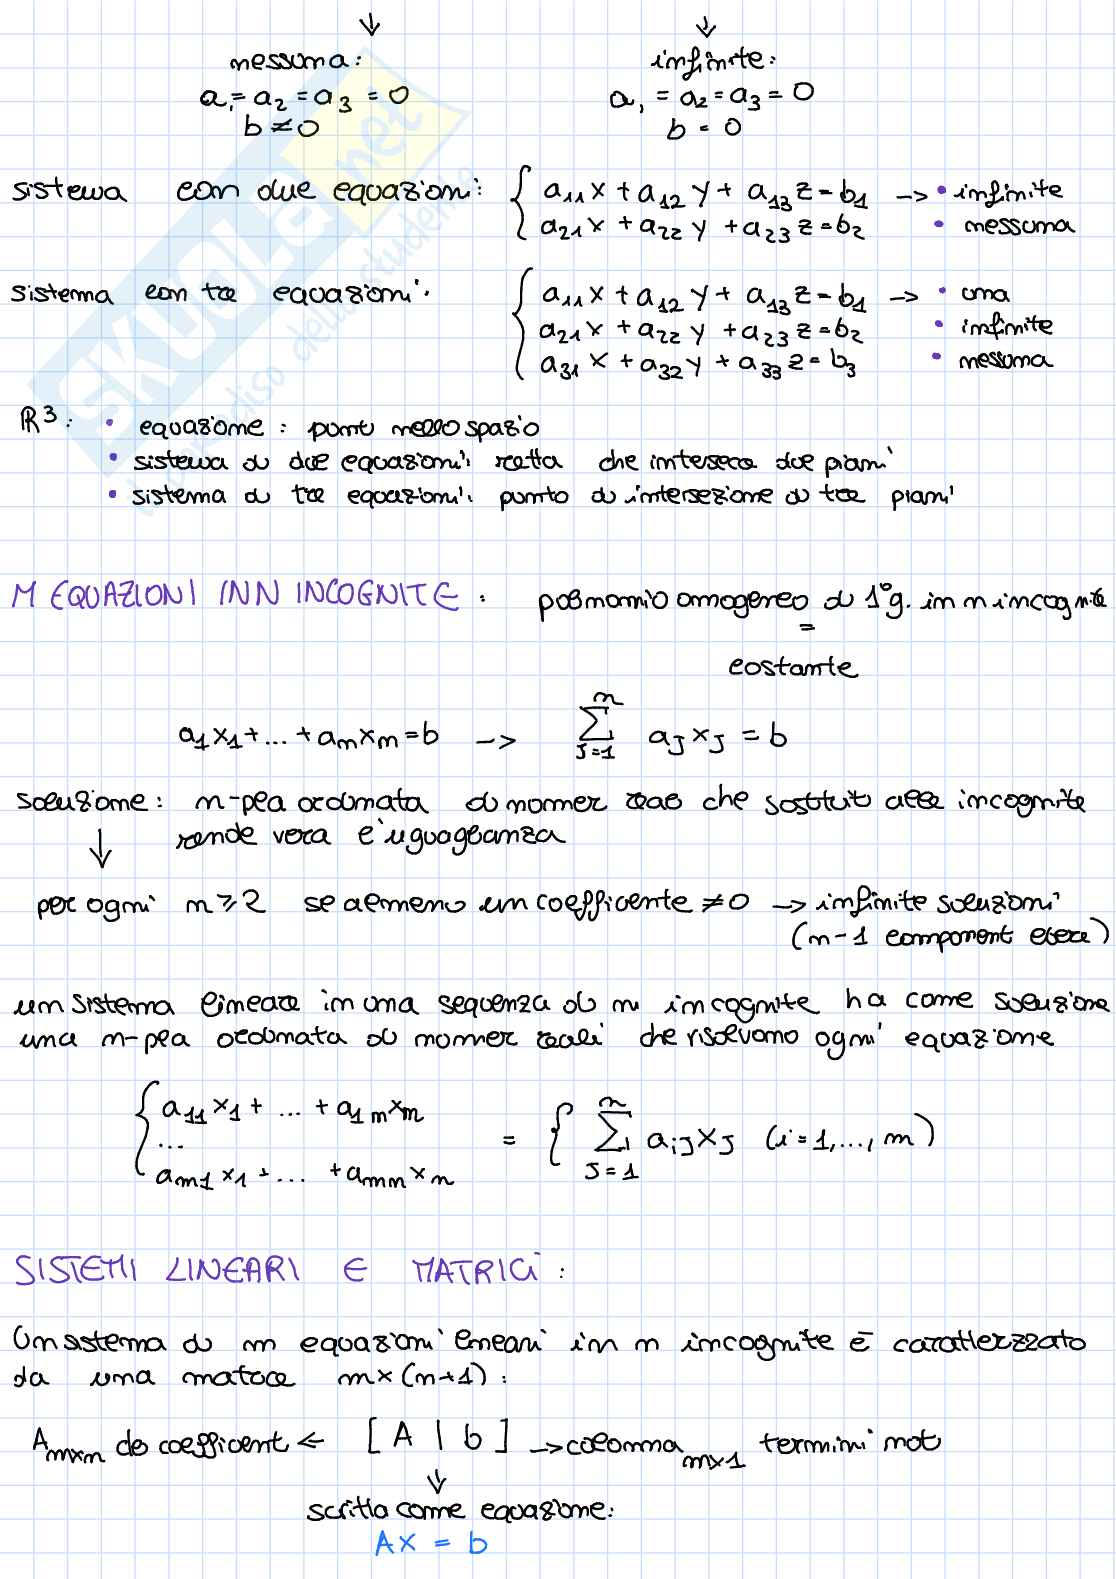 ↓ ↓
nessuna: infinite:
a₁ = a₂ = a₃ = 0 a₁ = a₂ = a₃ = 0
b ≠ 0 b = 0
sistema con due equazioni: { a₁₁x + a₁₂y + a₁₃z = b₁ → • infinite
a₂₁x + a₂₂y + a₂₃z = b₂ • nessuna
sistema con tre equazioni: { a₁₁x + a₁₂y + a₁₃z = b₁ → • una
a₂₁x + a₂₂y + a₂₃z = b₂ • infinite
a₃₁x + a₃₂y + a₃₃z = b₃ • nessuna
ℝ³: • equazione: punto nello spazio
• sistema di due equazioni: retta che interseca due piani
• sistema di tre equazioni: punto di intersezione di tre piani
M EQUAZIONI IN N INCOGNITE: polinomio omogeneo di 1° g. in n incognite
=
costante
a₁x₁ + ... + aₙxₙ = b → ∑ⁿⱼ₌₁ aⱼxⱼ = b
soluzione: n-pla ordinata di numeri reali che sostituiti alle incognite
↓ rende vera l'uguaglianza
per ogni n ≥ 2 se almeno un coefficiente ≠ 0 → infinite soluzioni
(n-1 componenti libere)
un sistema lineare in una sequenza di n incognite ha come soluzione
una n-pla ordinata di numeri reali che risolvono ogni equazione
{ a₁₁x₁ + ... + a₁ₙxₙ
... = { ∑ⁿⱼ₌₁ aᵢⱼxⱼ (i = 1, ..., m)
aₘ₁x₁ + ... + aₘₙxₙ
SISTEMI LINEARI E MATRICI:
Un sistema di m equazioni lineari in n incognite è caratterizzato
da una matrice m×(n+1):
Aₘₓₙ dei coefficienti ← [A | b] → colonna ₘₓ₁ termini noti
↓
scritta come equazione:
AX = b
SKUOLA.net
il paradiso dello studente